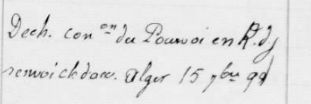 Dech. con^on du Pourvoi en R. dj
renvoi ch d'acc. Alger 15 7bre 99